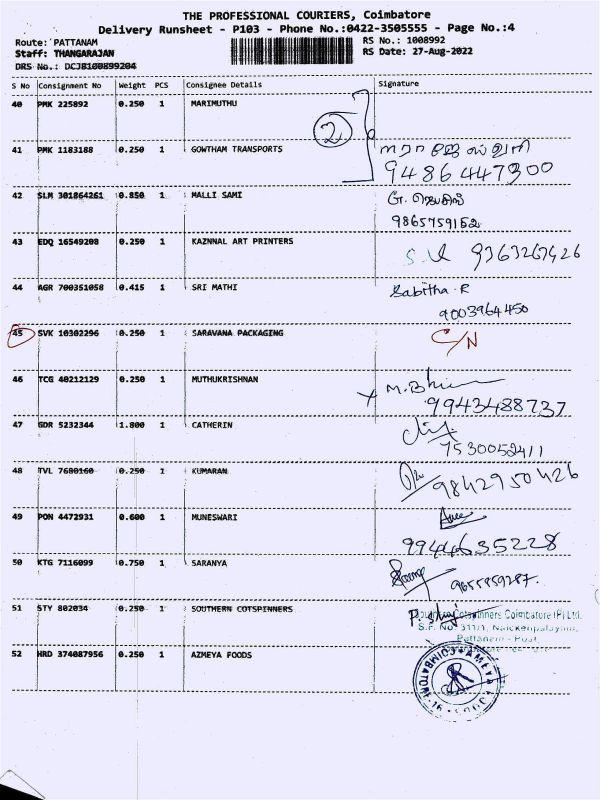 THE PROFESSIONAL COURIERS, Coimbatore
Delivery Runsheet - P103 - Phone No.:0422-3505555 - Page No.:4
Route: PATTANAM RS No.: 1008992
Staff: THANGARAJAN RS Date: 27-Aug-2022
DRS No.: DCJB100899204
S No Consignment No Weight PCS Consignee Details Signature
40 PMK 225892 0.250 1 MARIMUTHU
2
41 PMK 1183188 0.250 1 GOWTHAM TRANSPORTS
9486447300
42 SLM 301864261 0.850 1 MALLI SAMI
9865759152
43 EDQ 16549208 0.250 1 KAZNNAL ART PRINTERS S.V 9363267426
44 AGR 700351058 0.415 1 SRI MATHI Sabitha.R
9003964450
45 SVK 10302296 0.250 1 SARAVANA PACKAGING C/N
46 TCG 40212129 0.250 1 MUTHUKRISHNAN
9943488737
47 GDR 5232344 1.800 1 CATHERIN
7530052411
48 TVL 7680160 0.250 1 KUMARAN 9842950426
49 PON 4472931 0.600 1 MUNESWARI
9944635228
50 KTG 7116099 0.750 1 SARANYA
51 STY 802034 0.250 1 SOUTHERN COTSPINNERS Southern Cotspinners Coimbatore (P) Ltd.
S.F. No. 311/1, Naickenpalayam,
Pattanam - Post,
52 HRD 374087956 0.250 1 AZMEYA FOODS